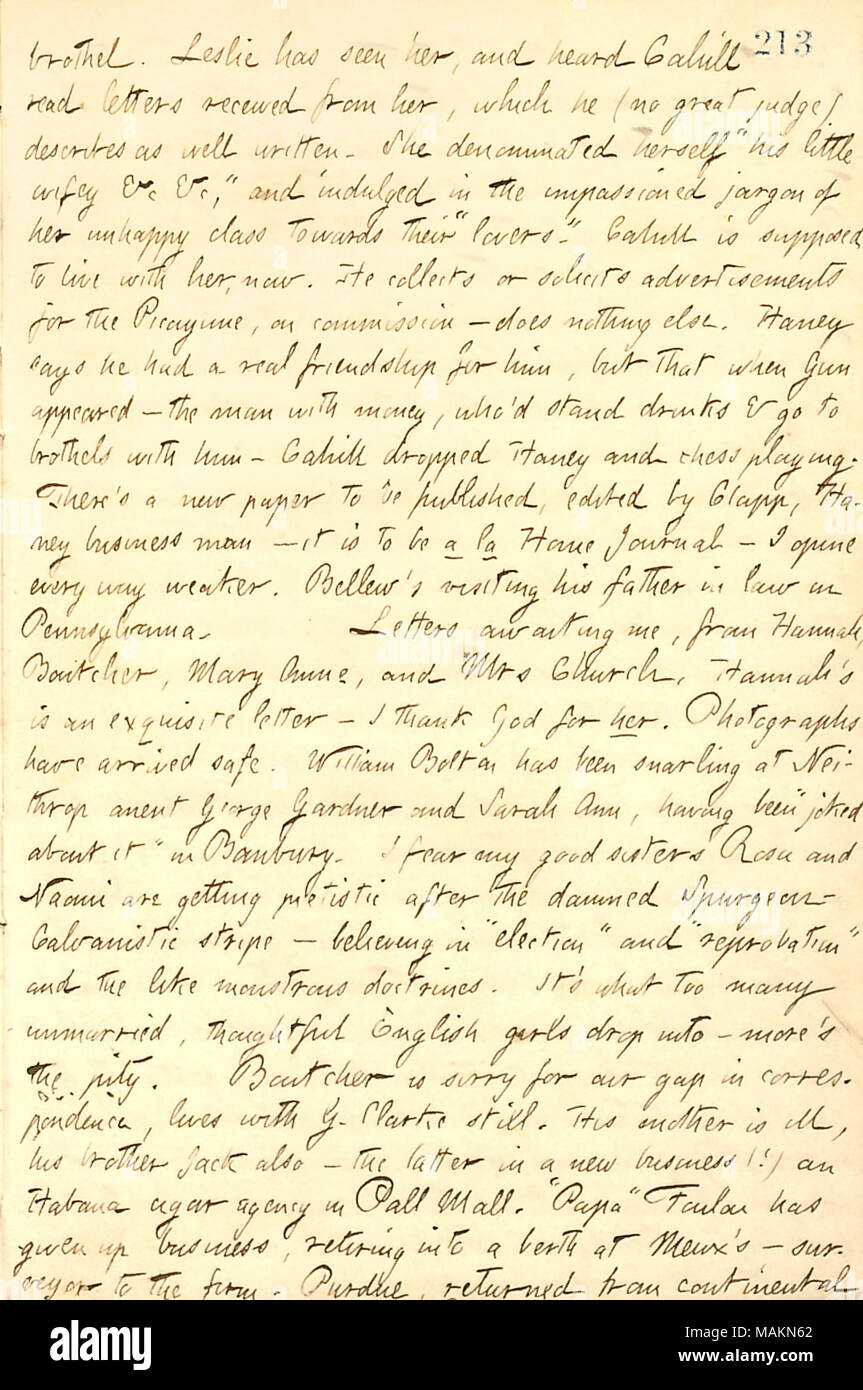 213
brothel. Leslie has seen her, and heard Cahill
read letters received from her, which he (no great judge)
describes as well written. She denominated herself "his little
wifey &c &c," and indulged in the impassioned jargon of
her unhappy class towards their "lovers." Cahill is supposed
to live with her, now. He collects or solicits advertisements
for the Picayune, on commission — does nothing else. Haney
says he had a real friendship for him, but that when Gun
appeared — the man with money, who'd stand drinks & go to
brothels with him — Cahill dropped Haney and chess playing.
There's a new paper to be published, edited by Clapp, Ha-
ney business man — it is to be a la Home Journal — I opine
every way weaker. Bellew's visiting his father in law in
Pennsylvania. Letters awaiting me, from Hannah,
Boutcher, Mary Anne, and Mrs Church. Hannah's
is an exquisite letter — I thank God for her. Photographs
have arrived safe. William Bolton has been snarling at Nei-
throp anent George Gardner and Sarah Ann, having been "joked
about it" in Banbury. I fear my good sisters Rosa and
Naomi are getting pietistic after the damned Spurgeon-
Calvanistic stripe — believing in "election" and "reprobation"
and the like monstrous doctrines. It's what too many
unmarried, thoughtful English girls drop into — more's
the pity. Boutcher is sorry for our gap in corres-
pondence, lives with G. Clarke still. His mother is ill,
his brother Jack also — the latter in a new business (!) an
Habana cigar agency in Pall Mall. "Papa" Foulon has
given up business, retiring into a berth at Meux's — sur-
veyor to the firm. Purdue, returned from continental
alamy
Image ID: MAKN62
www.alamy.com